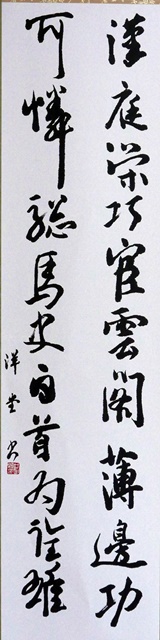 漢庭榮巧宦雲閣薄邊功
可憐驄馬史白首為誰雄
洋堂書